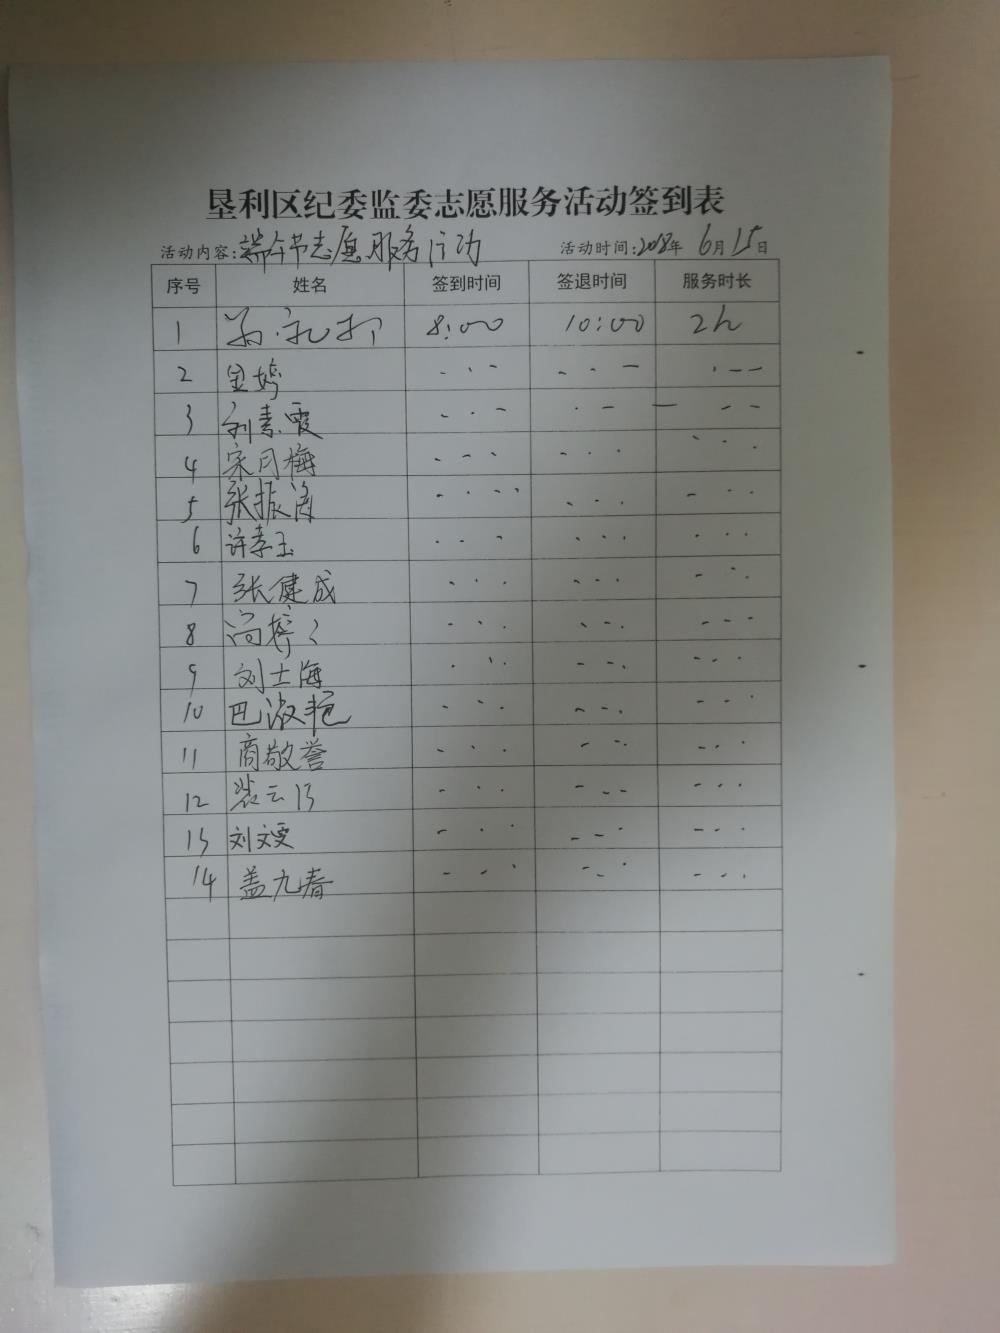 垦利区纪委监委志愿服务活动签到表
活动内容:端午节志愿服务活动 活动时间:2018年 6月15日
序号 姓名 签到时间 签退时间 服务时长
1 8:00 10:00 2h
2 金婷
3 刘素霞
4 宋同梅
5 张振涛
6 许孝玉
7 张健成
8
9 刘士海
10 巴淑艳
11 商敬誉
12 裴云
13 刘文雯
14 盖九春